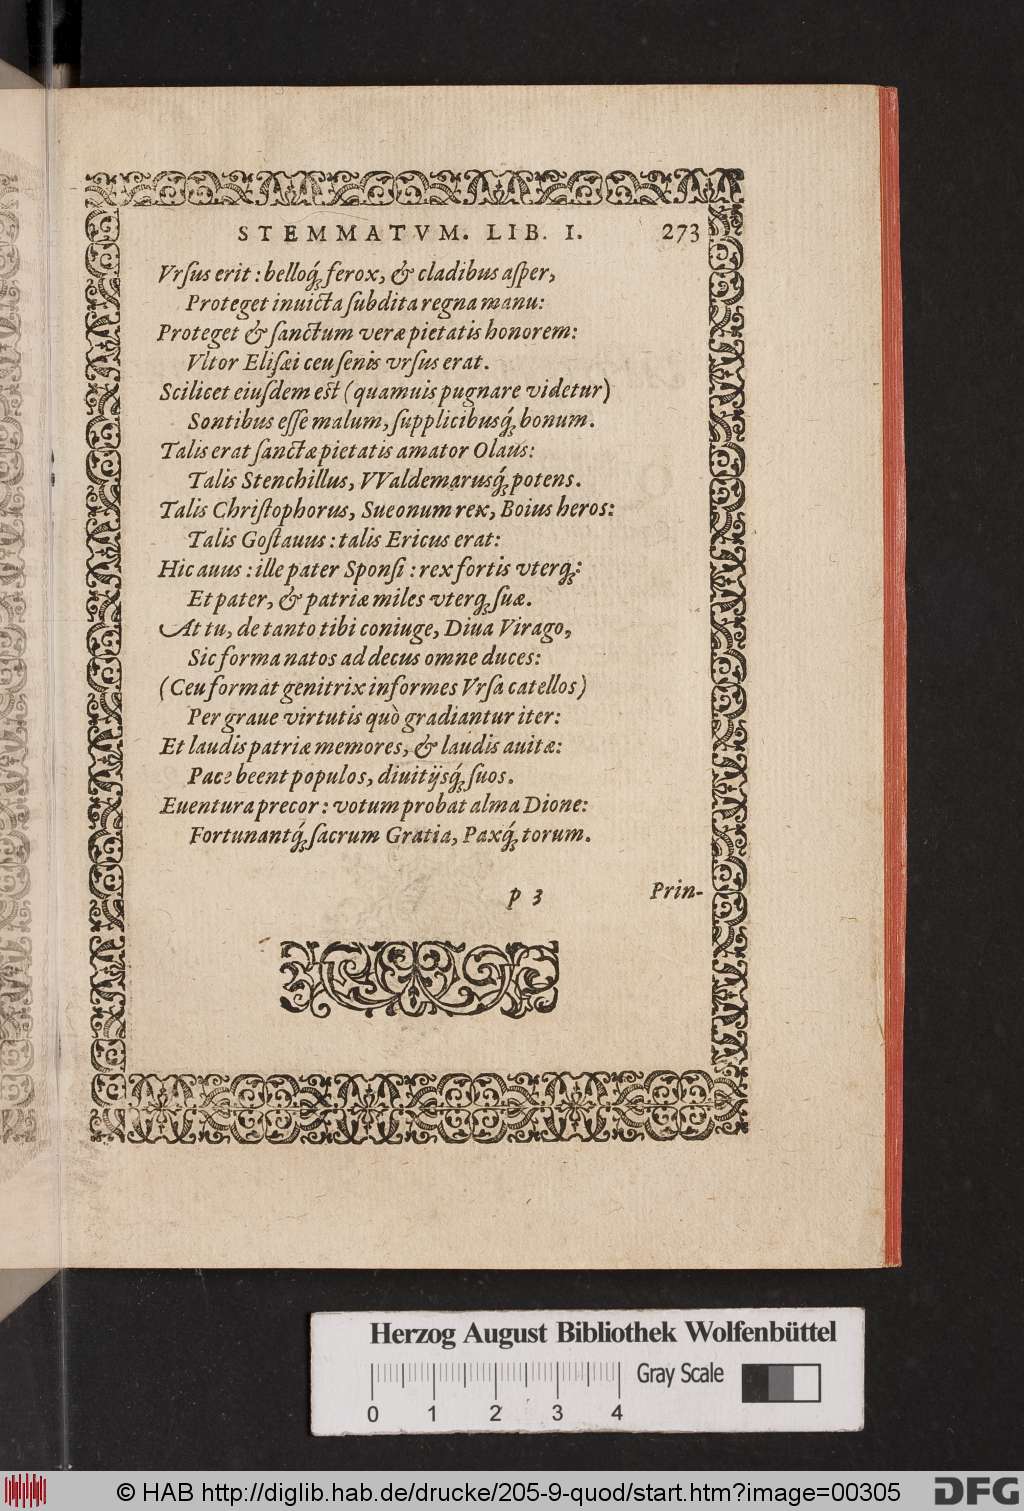 STEMMATVM. LIB. I. 273
Vrſus erit: belloq́; ferox, & cladibus aſper,
Proteget inuicta ſubdita regna manu:
Proteget & ſanctum veræ pietatis honorem:
Vltor Eliſæi ceu ſenis vrſus erat.
Scilicet eiuſdem est (quamuis pugnare videtur)
Sontibus eſſe malum, ſupplicibusq́; bonum.
Talis erat ſanctæ pietatis amator Olaus:
Talis Stenchillus, VValdemarusq́; potens.
Talis Chriſtophorus, Sueonum rex, Boius heros:
Talis Goſtauus: talis Ericus erat:
Hic auus: ille pater Sponſi: rex fortis vterq́;:
Et pater, & patriæ miles vterq; ſuæ.
At tu, de tanto tibi coniuge, Diua Virago,
Sic forma natos ad decus omne duces:
(Ceu format genitrix informes Vrſa catellos)
Per graue virtutis quò gradiantur iter:
Et laudis patriæ memores, & laudis auitæ:
Pace beent populos, diuitijsq́; ſuos.
Euentura precor: votum probat alma Dione:
Fortunantq́; ſacrum Gratia, Paxq́; torum.
p 3 Prin-
Herzog August Bibliothek Wolfenbüttel
Gray Scale
0 1 2 3 4
© HAB http://diglib.hab.de/drucke/205-9-quod/start.htm?image=00305
DFG